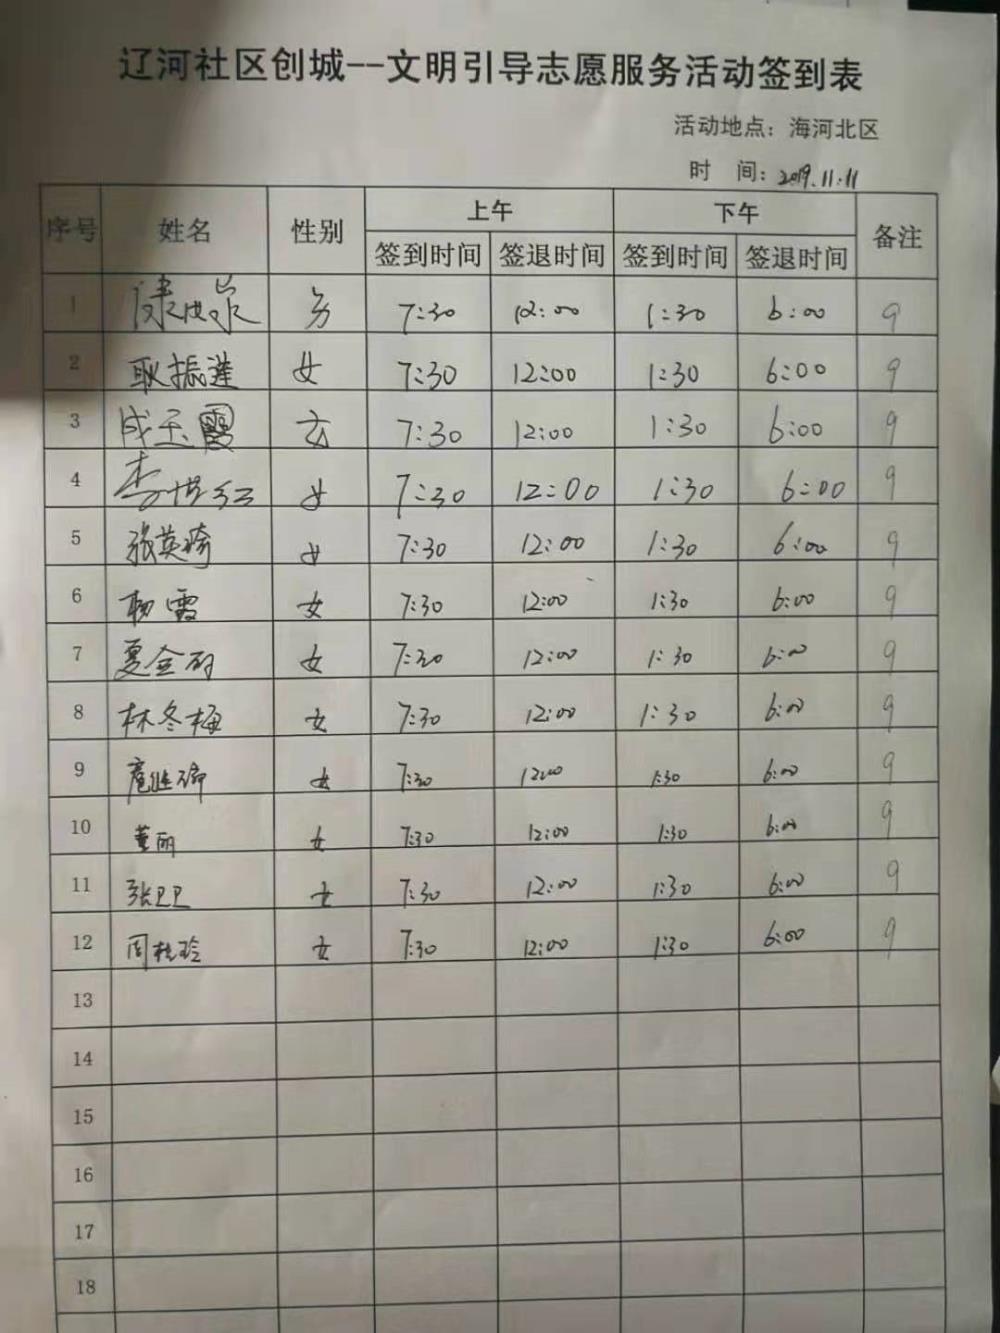 辽河社区创城--文明引导志愿服务活动签到表
活动地点：海河北区
时 间：2019.11.11
序号 姓名 性别 上午 下午 备注
签到时间 签退时间 签到时间 签退时间
1 男 7:30 12:00 1:30 6:00 9
2 耿振莲 女 7:30 12:00 1:30 6:00 9
3 成玉霞 女 7:30 12:00 1:30 6:00 9
4 李世红 女 7:30 12:00 1:30 6:00 9
5 张英琦 女 7:30 12:00 1:30 6:00 9
6 杨霞 女 7:30 12:00 1:30 6:00 9
7 夏金 女 7:30 12:00 1:30 6:00 9
8 林冬梅 女 7:30 12:00 1:30 6:00 9
9 女 7:30 12:00 1:30 6:00 9
10 董丽 女 7:30 12:00 1:30 6:00 9
11 张卫卫 女 7:30 12:00 1:30 6:00 9
12 周桂玲 女 7:30 12:00 1:30 6:00 9
13
14
15
16
17
18